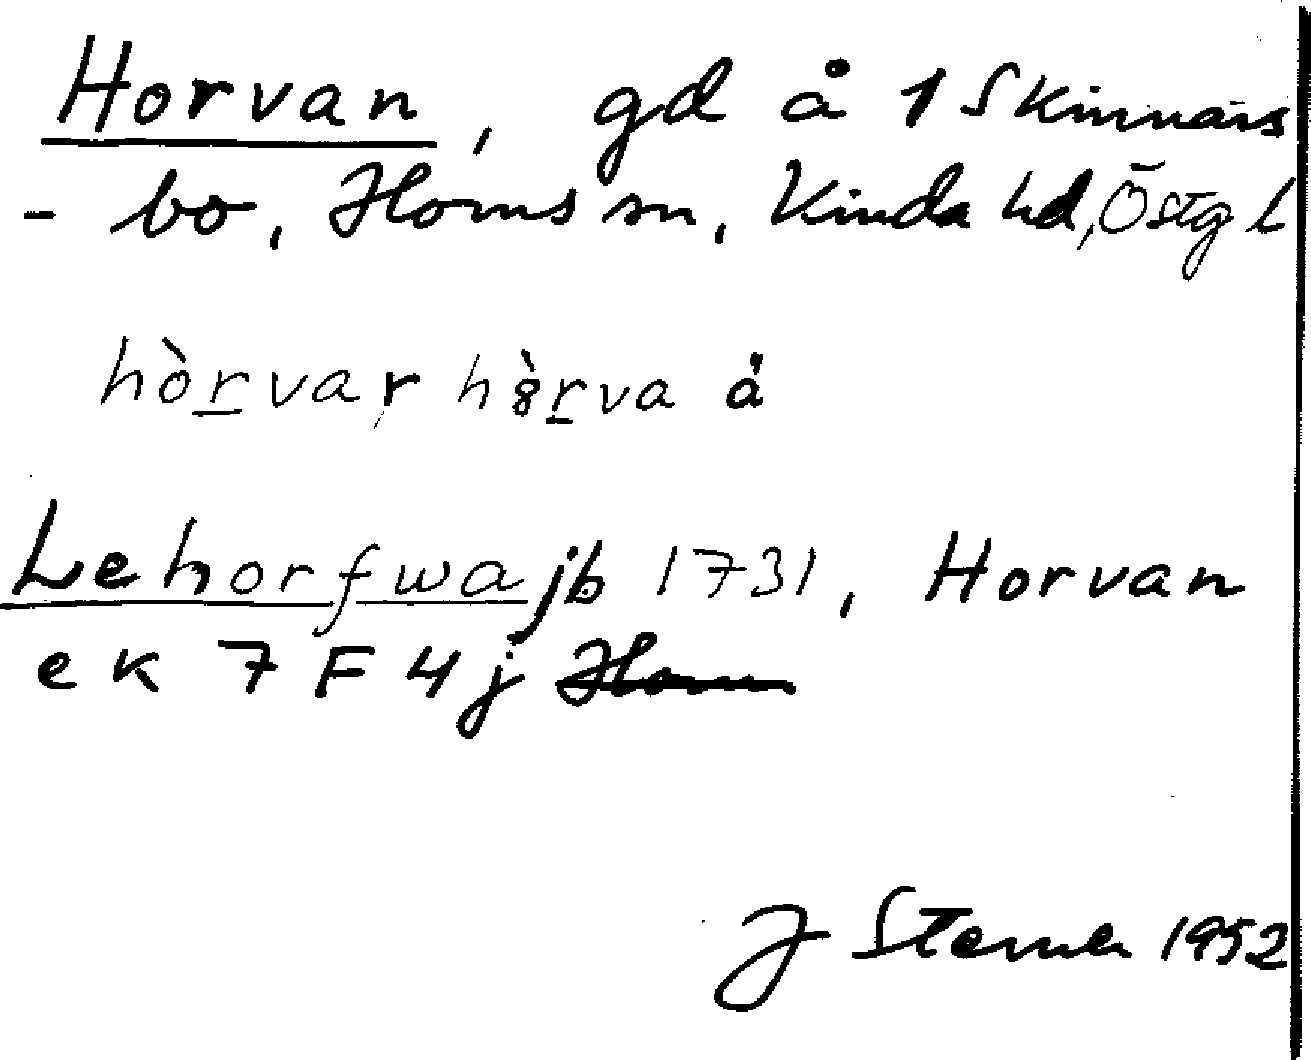 Horvan, gd å 1 Skinnars
- bo, Horns sn, Kinda hd, Östg l
hòrvar hò̱rva å
Lehorfwa jb 1731, Horvan
ek 7 F 4 j
J Sterner 1952